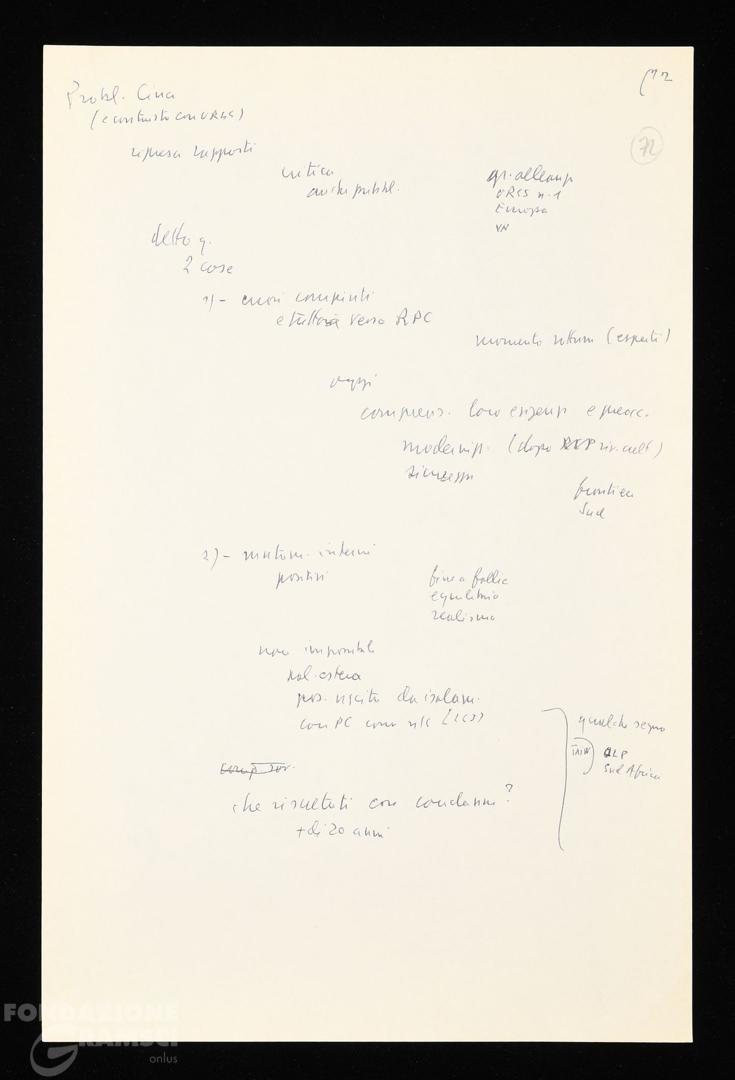 Probl. Cina
(e contrasto con URSS)
72
ripresa rapporti
critica
anche pubbl.
gr. alleanz
URSS n. 1
Europa
VN
detto q.
2 cose
1) - errori compiuti
e tuttora verso RPC
momento rottura (esperti)
oggi
comprens. loro esigenze e preocc.
moderniz. (dopo riv. cult)
sicurezza
frontiera
Sud
2) - mutam. interni
positivi
fine follie
equilibrio
realismo
non impossibile
pol. estera
pos. uscita da isolam.
con PC come n/s (LCJ)
qualche segno
TAIW
OLP
Sud Africa
comp sov.
che risultati con condanne?
+ di 20 anni
FONDAZIONE
GRAMSCI
onlus